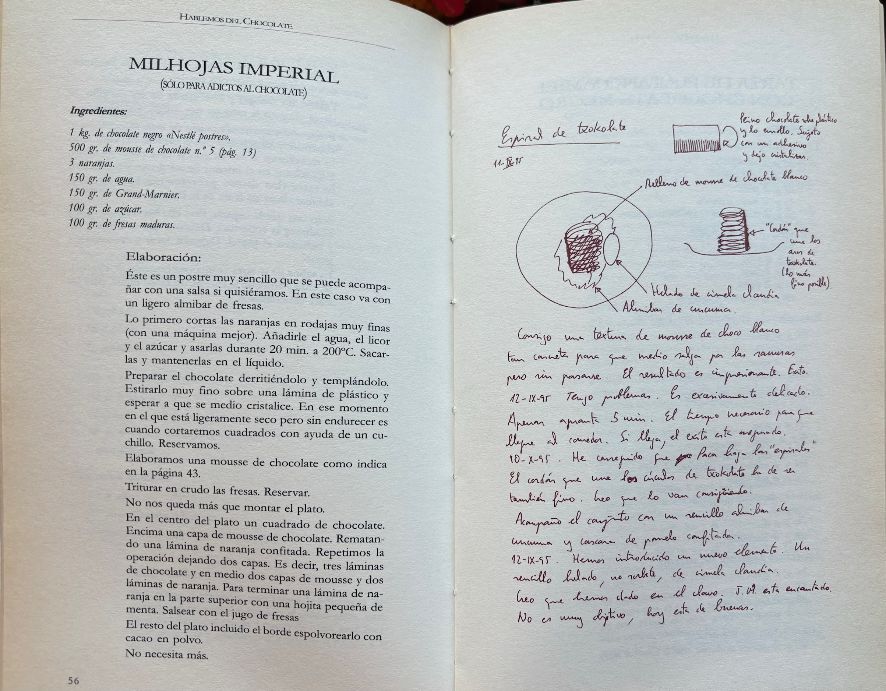 HABLEMOS DEL CHOCOLATE
MILHOJAS IMPERIAL
(SÓLO PARA ADICTOS AL CHOCOLATE)
Ingredientes:
1 kg. de chocolate negro «Nestlé postres».
500 gr. de mousse de chocolate n.º 5 (pág. 13)
3 naranjas.
150 gr. de agua.
150 gr. de Grand-Marnier.
100 gr. de azúcar.
100 gr. de fresas maduras.
Elaboración:
Éste es un postre muy sencillo que se puede acompa-
ñar con una salsa si quisiéramos. En este caso va con
un ligero almibar de fresas.
Lo primero cortas las naranjas en rodajas muy finas
(con una máquina mejor). Añadirle el agua, el licor
y el azúcar y asarlas durante 20 min. a 200ºC. Sacar-
las y mantenerlas en el líquido.
Preparar el chocolate derritiéndolo y templándolo.
Estirarlo muy fino sobre una lámina de plástico y
esperar a que se medio cristalice. En ese momento
en el que está ligeramente seco pero sin endurecer es
cuando cortaremos cuadrados con ayuda de un cu-
chillo. Reservamos.
Elaboramos una mousse de chocolate como indica
en la página 43.
Triturar en crudo las fresas. Reservar.
No nos queda más que montar el plato.
En el centro del plato un cuadrado de chocolate.
Encima una capa de mousse de chocolate. Rematan-
do una lámina de naranja confitada. Repetimos la
operación dejando dos capas. Es decir, tres láminas
de chocolate y en medio dos capas de mousse y dos
láminas de naranja. Para terminar una lámina de na-
ranja en la parte superior con una hojita pequeña de
menta. Salsear con el jugo de fresas
El resto del plato incluido el borde espolvorearlo con
cacao en polvo.
No necesita más.
56
Espiral de txokolate
11-IX-95
Peino chocolate sobre plástico
y lo enrollo. Sujeto
con un adhesivo
y dejo cristalizar.
Relleno de mousse de chocolate blanco
"Cordón" que
une los
aros de
txokolate.
(Lo más
fino posible)
Helado de ciruela claudia
Almíbar de curcuma
Consigo una textura de mousse de choco blanco
tan concreta para que medio salga por las ranuras
pero sin pasarse. El resultado es impresionante. Exito.
12-IX-95. Tengo problemas. Es excesivamente delicado.
Apenas aguanta 5 min. El tiempo necesario para que
llegue al comedor. Si llega, el exito esta asegurado.
10-X-95. He conseguido que Paco haga las "espirales"
El cordón que une los círculos de txokolate ha de ser
también fino. Creo que lo van consiguiendo.
Acompaño el conjunto con un sencillo almibar de
curcuma y cascara de pomelo confitada.
12-IX-95. Hemos introducido un nuevo elemento. Un
sencillo helado, no sorbete, de ciruela claudia.
Creo que hemos dado en el clavo. J.M. esta encantado.
No es muy objetivo, hoy esta de buenas.